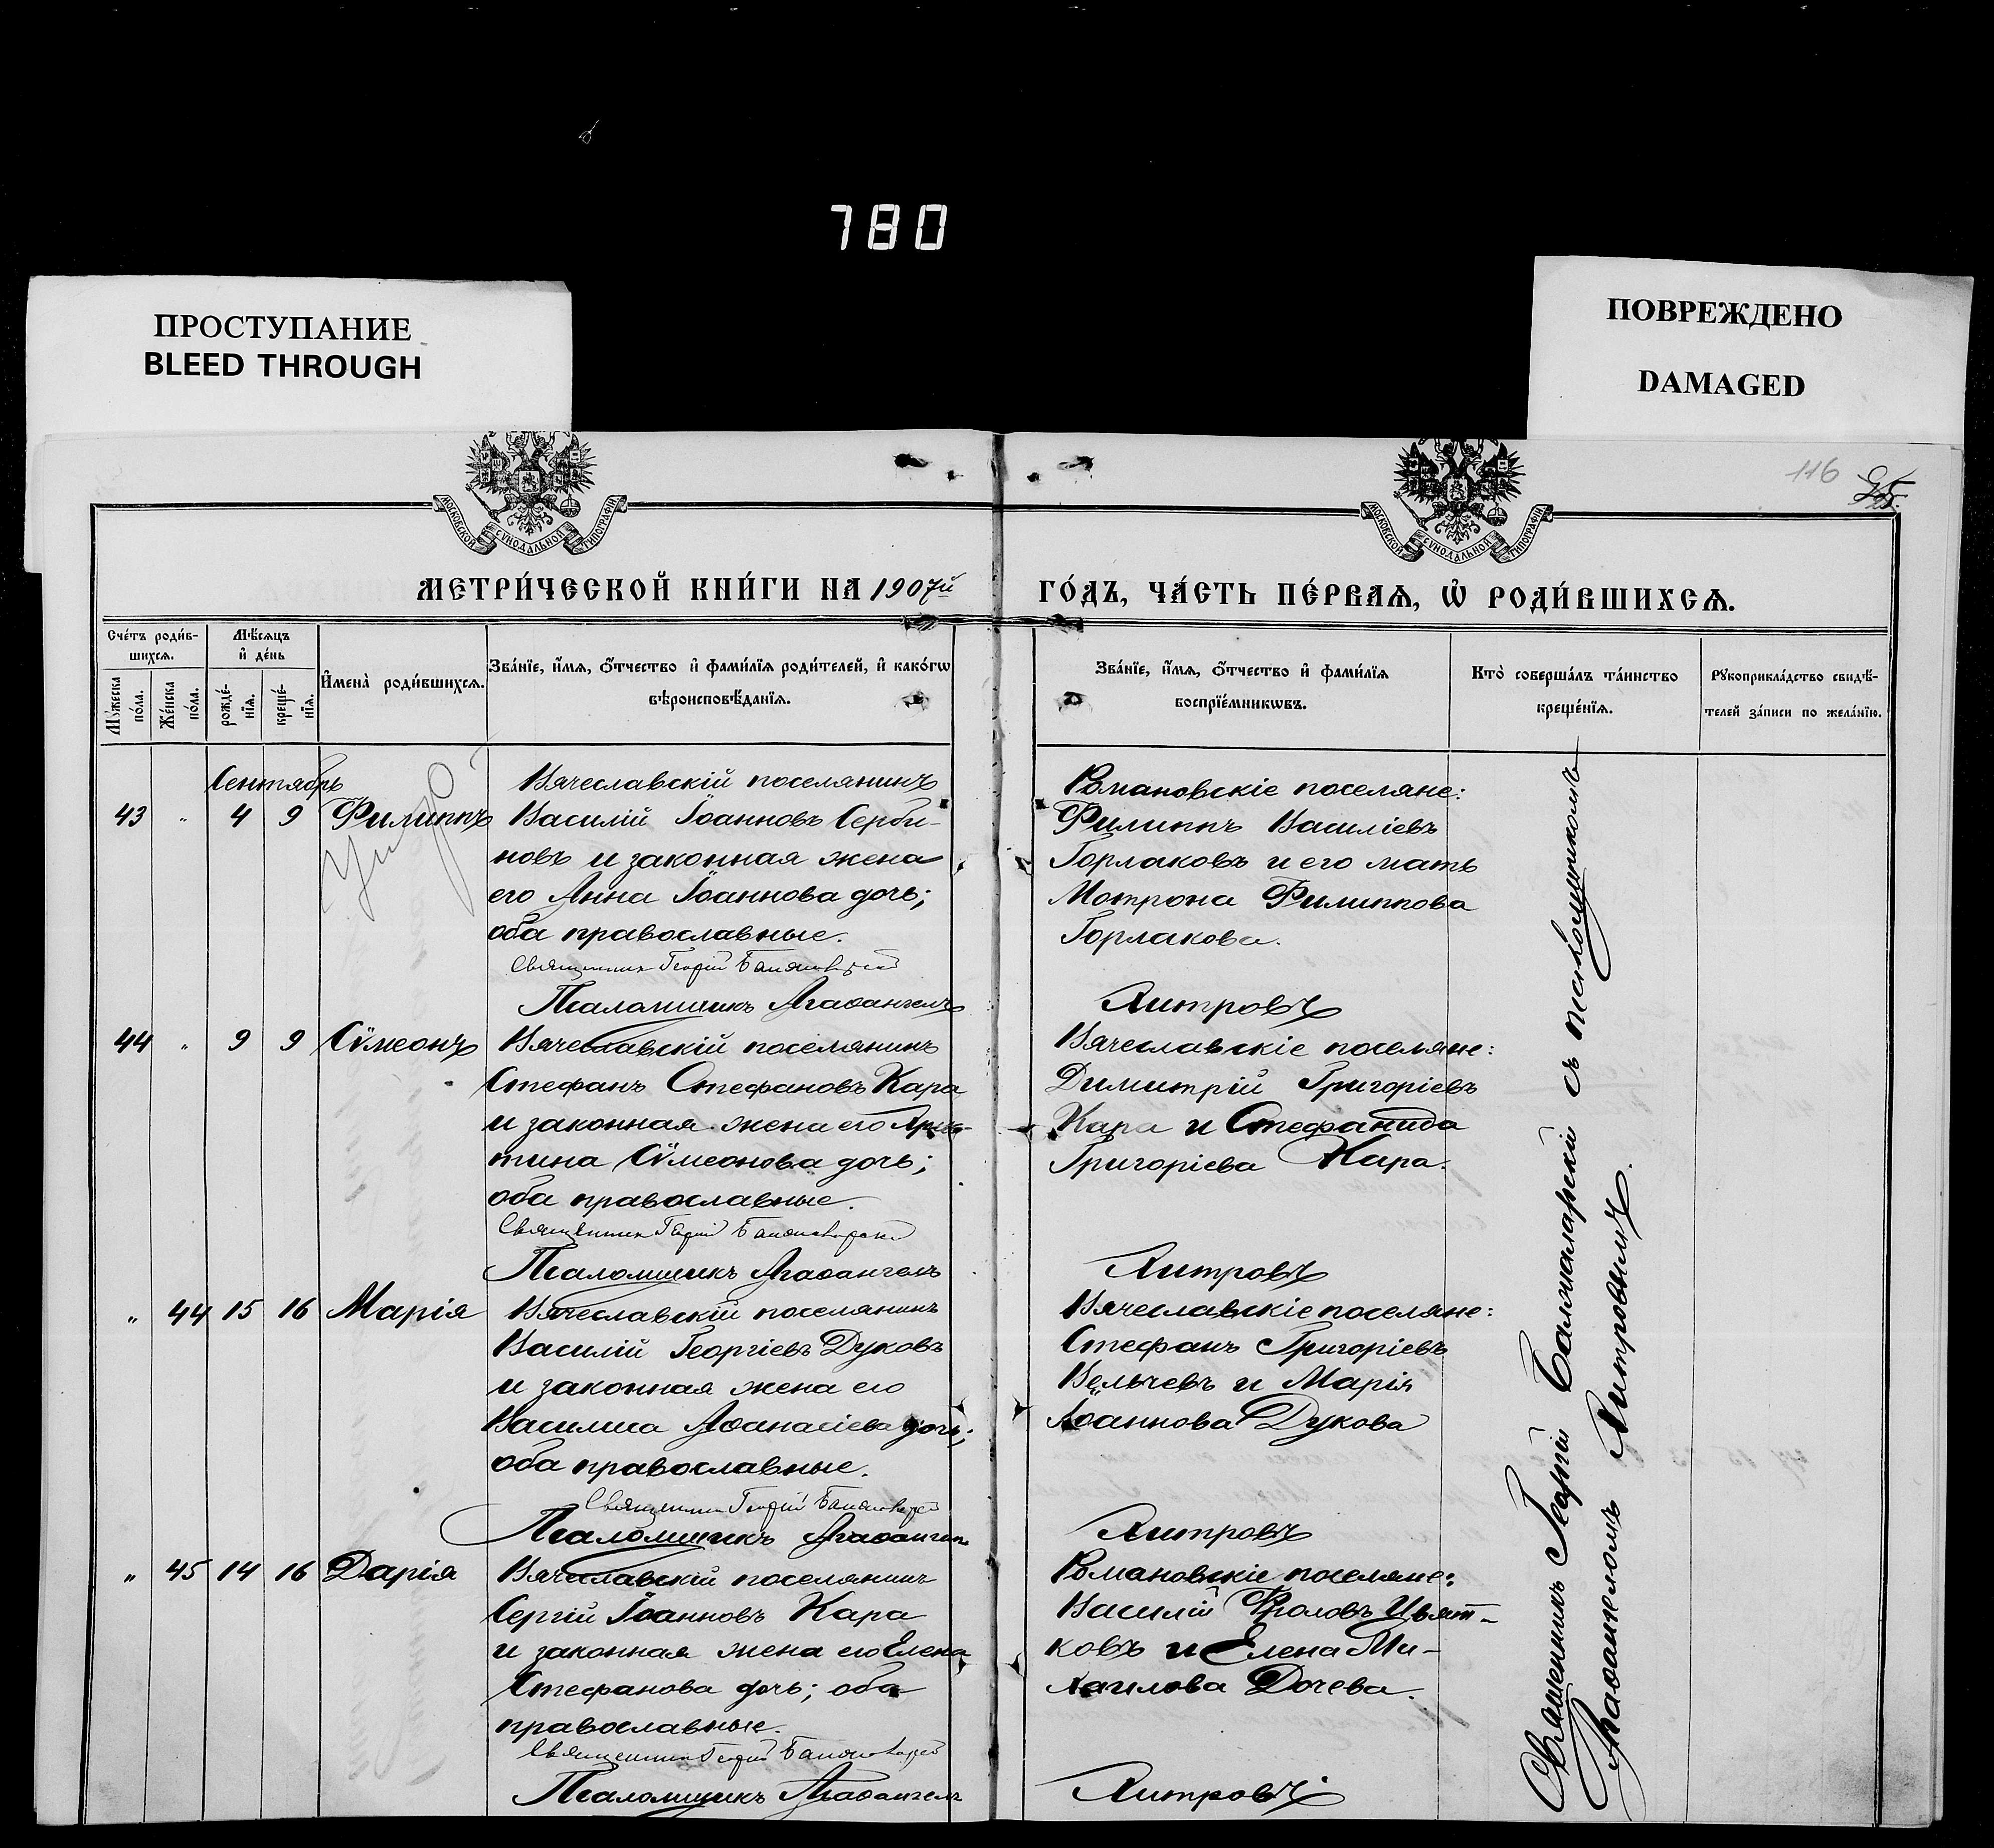 780
ПРОСТУПАНИЕ
BLEED THROUGH
ПОВРЕЖДЕНО
DAMAGED
МОСКОВСКОЙ СѴНОДАЛЬНОЙ ТИПОГРАФІИ
МОСКОВСКОЙ СѴНОДАЛЬНОЙ ТИПОГРАФІИ
116
МЕТРИ́ЧЕСКОЙ КНИ́ГИ НА 1907й ГО́ДЪ, ЧА́СТЬ ПЕ́РВАѦ, Ѡ҆ РОДИ́ВШИХСѦ.
Сче́тъ роди́в-
шихсѧ.
Мꙋ́жеска
по́ла.
Же́нска
по́ла.
Мѣ́сѧцъ
и҆ де́нь
рожде́-
нїѧ.
креще́-
нїѧ.
И҆мена̀ роди́вшихсѧ.
Зва́нїе, и҆́мѧ, ѻ҆́тчество и҆ фами́лїѧ роди́телей, и҆ како́гѡ
вѣроисповѣ́данїѧ.
Зва́нїе, и҆́мѧ, ѻ҆́тчество и҆ фами́лїѧ
воспрїе́мникѡвъ.
Кто̀ соверша́лъ та́инство
креще́нїѧ.
Рꙋкоприкла́дство свидѣ́-
телей за́писи по жела́нїю.
Сентябрь
43 „ 4 9 Филиппъ
Вячеславскій поселянинъ
Василій Іоанновъ Серби-
новъ и законная жена
его Анна Іоаннова дочь;
оба православные.
Священник Георгій
Псаломщикъ Агаѳангелъ
Романовскіе поселяне:
Филиппъ Василіевъ
Горлаковъ и его мать
Мотрона Филиппова
Горлакова.
Хитровъ
44 „ 9 9 Сѵмеонъ
Вячеславскій поселянинъ
Стефанъ Стефановъ Кара
и законная жена его
тина Сѵмеонова дочь;
оба православные.
Священник Георгій
Псаломщикъ Агаѳангелъ
Вячеславскіе поселяне:
Димитрій Григоріевъ
Кара и Стефанида
Григоріева Кара.
Хитровъ
„ 44 15 16 Марія
Вячеславскій поселянинъ
Василій Георгіевъ Дуковъ
и законная жена его
Василиса Аѳанасіева дочь;
оба православные.
Священник Георгій
Псаломщикъ Агаѳангелъ
Вячеславскіе поселяне:
Стефанъ Григоріевъ
Вельчевъ и Марія
Іоаннова Дукова
Хитровъ
„ 45 14 16 Дарія
Вячеславскій поселянинъ
Сергій Іоанновъ Кара
и законная жена его Елена
Стефанова дочь; оба
православные.
Священник Георгій
Псаломщикъ Агаѳангелъ
Романовскіе поселяне:
Василій Фроловъ Цвят-
ковъ и Елена Ми-
хаилова Дочева.
Хитровъ
Священникъ Георгій съ псаломщикомъ
Агаѳангеломъ Хитровымъ.